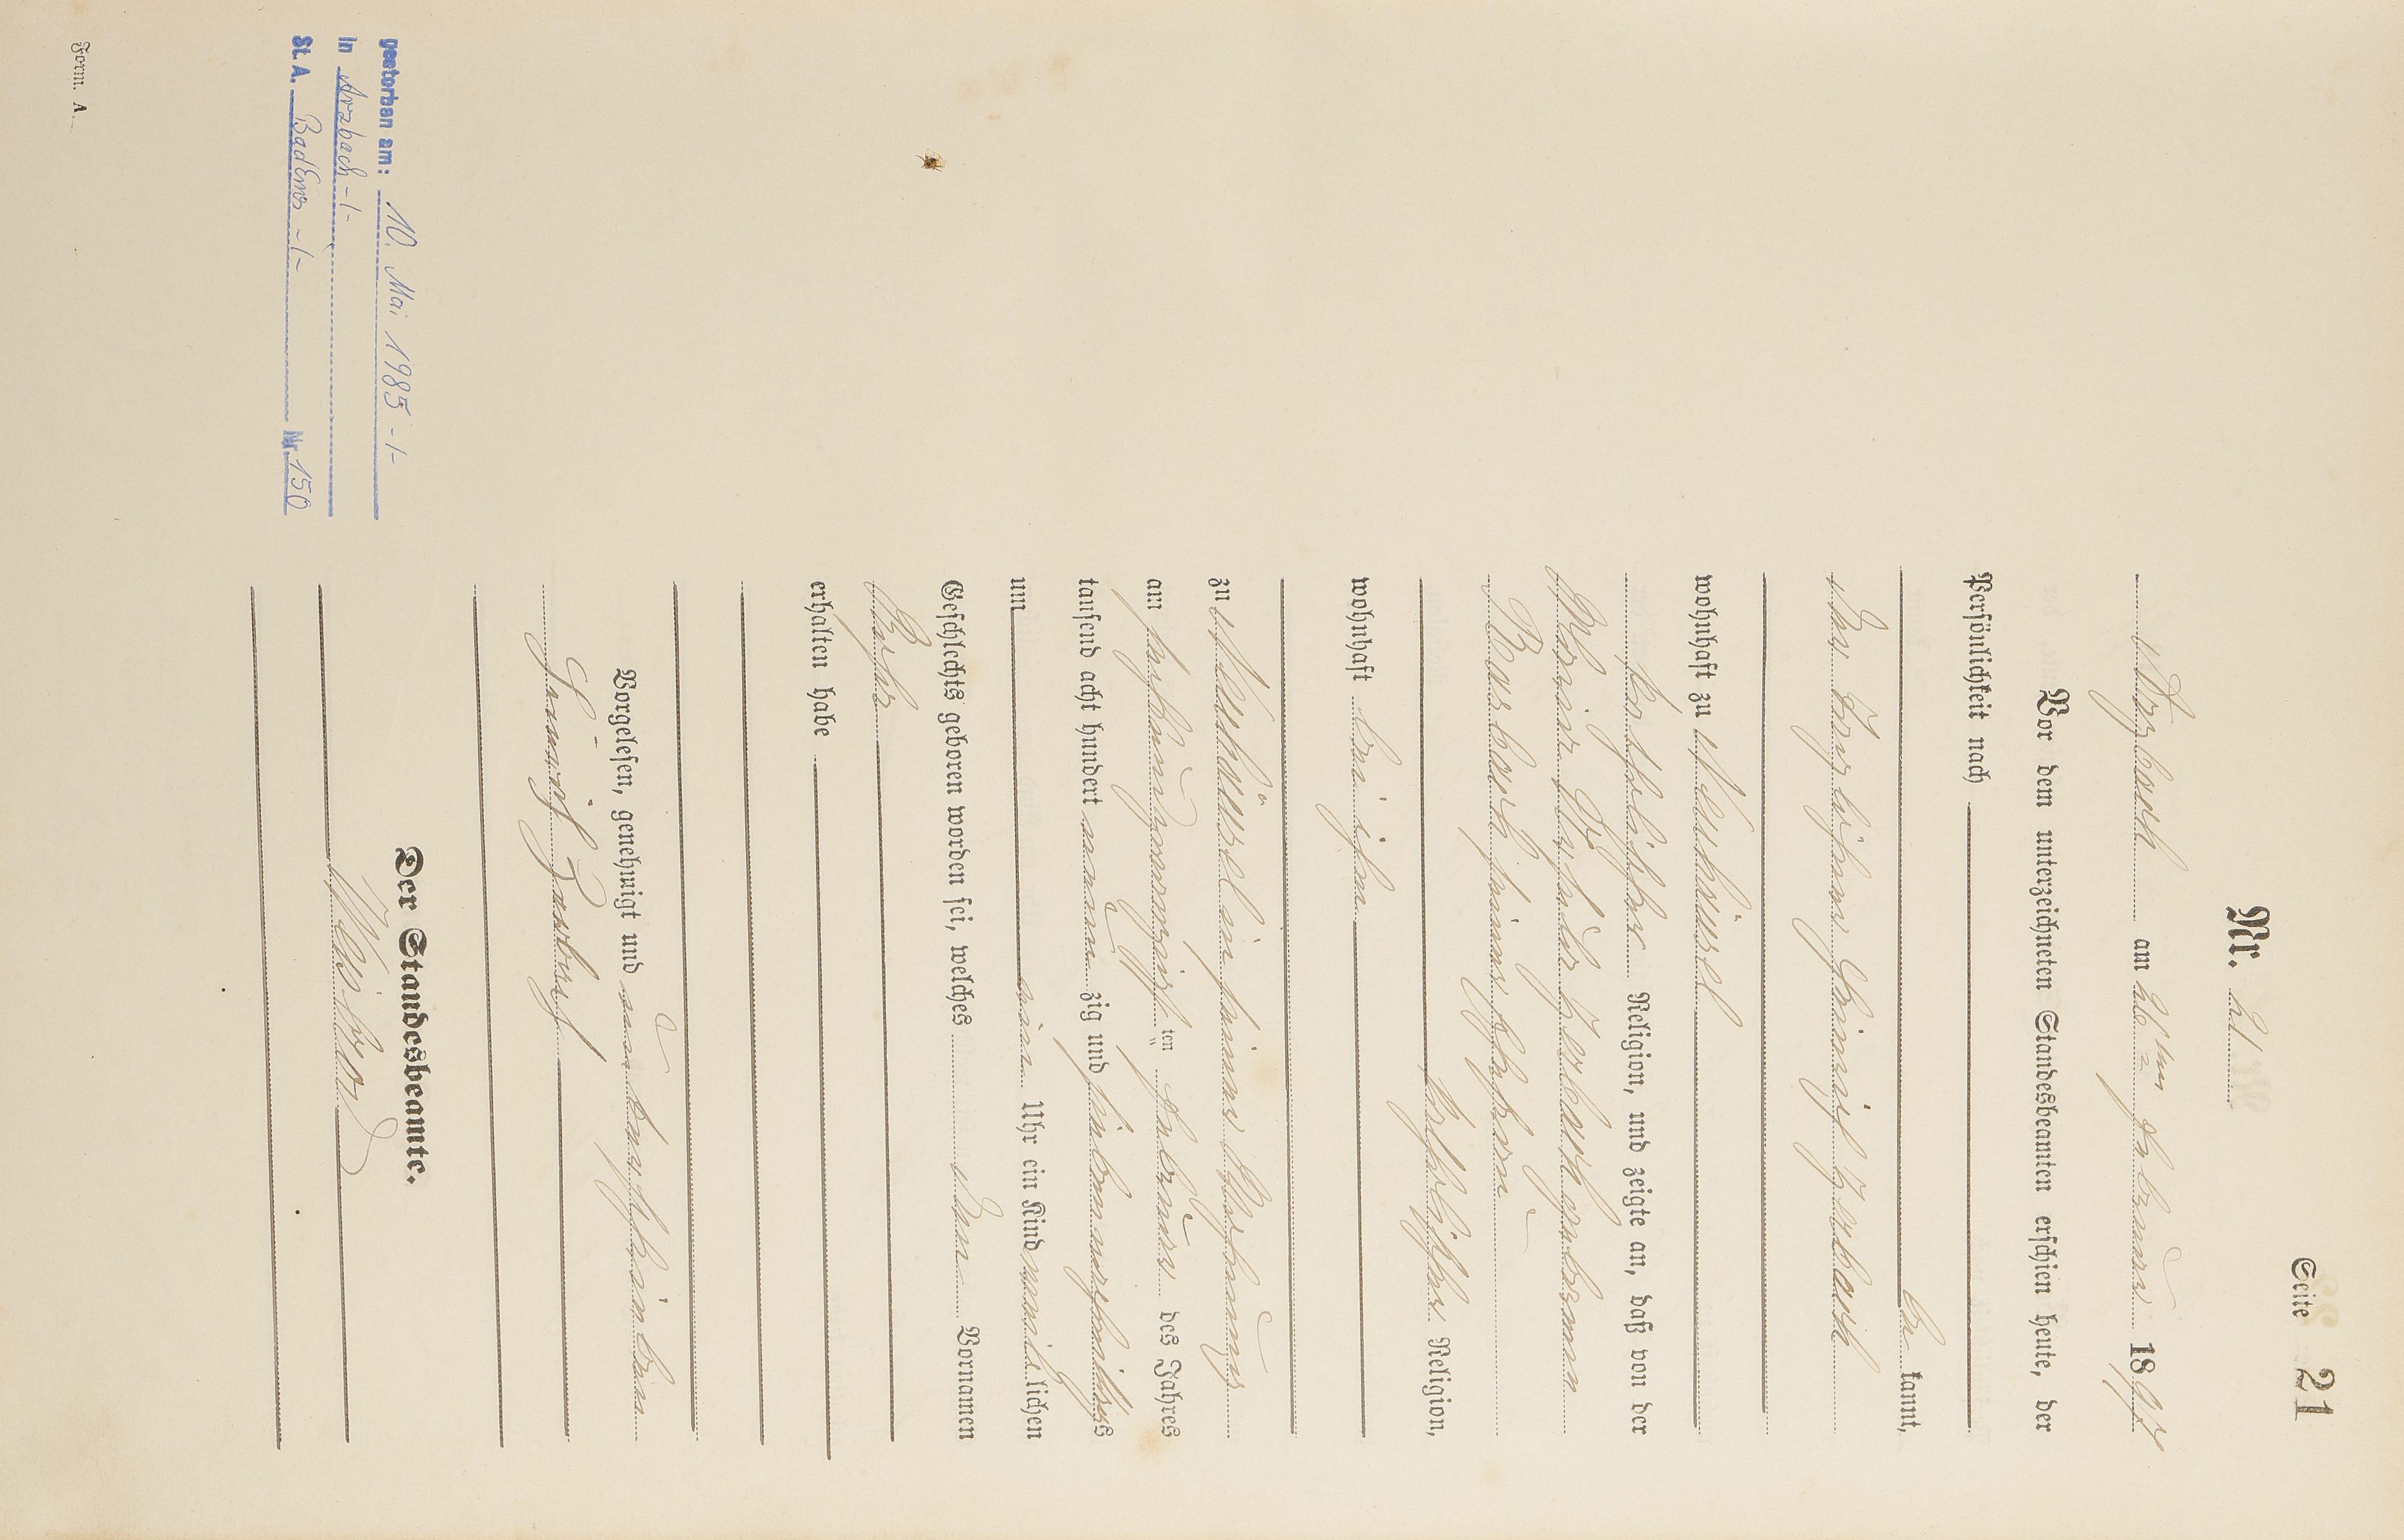 Seite 21
Nr. 21
Arzbach am 26ten Februar 1897
Vor dem unterzeichneten Standesbeamten erschien heute, der
Persönlichkeit nach
be kannt,
der Heinrich
wohnhaft zu Neuhäusel
katholischer Religion, und zeigte an, daß von der
geborenen
seiner Ehefrau
katholischer Religion,
wohnhaft bei ihm
zu Neuhäusel in seiner Wohnung
am fünfundzwanzigsten Februar des Jahres
tausend acht hundert neunzig und sieben nachmittags
um ein Uhr ein Kind männlichen
Geschlechts geboren worden sei, welches den Vornamen
erhalten habe
Vorgelesen, genehmigt und unterschrieben
Heinrich
Der Standesbeamte.
gestorben am: 10. Mai 1985 -/-
in Arzbach -/-
St. A. Bad Ems -/- Nr. 150
Form. A.